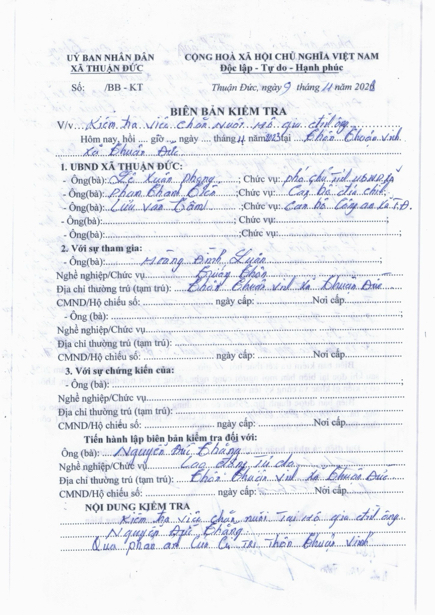 UỶ BAN NHÂN DÂN
XÃ THUẬN ĐỨC
CỘNG HOÀ XÃ HỘI CHỦ NGHĨA VIỆT NAM
Độc lập - Tự do - Hạnh phúc
Số: /BB - KT
Thuận Đức, ngày 9 tháng 4 năm 202
BIÊN BẢN KIỂM TRA
V/v Kiểm tra việc chăn nuôi hộ gia đình ông
Hôm nay, hồi .... giờ ... ngày .... tháng 4 năm 2023 tại Thôn Thuận Vinh
Xã Thuận Đức
1. UBND XÃ THUẬN ĐỨC:
- Ông(bà): Lê Xuân Phong ; Chức vụ: phó chủ tịch UBND xã
- Ông(bà): Phan Thanh ; Chức vụ: Cán bộ địa chính
- Ông(bà): Lưu Văn ; Chức vụ: Cán bộ Công an xã T.Đ
- Ông(bà): ; Chức vụ:
- Ông(bà): ; Chức vụ:
2. Với sự tham gia:
- Ông(bà): Hoàng Đình Luân
Nghề nghiệp/Chức vụ Trưởng thôn
Địa chỉ thường trú (tạm trú): Thôn Thuận Vinh xã Thuận Đức
CMND/Hộ chiếu số: ngày cấp: Nơi cấp
- Ông (bà):
Nghề nghiệp/Chức vụ
Địa chỉ thường trú (tạm trú):
CMND/Hộ chiếu số: ngày cấp: Nơi cấp
3. Với sự chứng kiến của:
- Ông (bà):
Nghề nghiệp/Chức vụ
Địa chỉ thường trú (tạm trú):
CMND/Hộ chiếu số: ngày cấp: Nơi cấp
Tiến hành lập biên bản kiểm tra đối với:
Ông (bà): Nguyễn Đức Thắng
Nghề nghiệp/Chức vụ Lao động tự do
Địa chỉ thường trú (tạm trú): Thôn Thuận Vinh xã Thuận Đức
CMND/Hộ chiếu số: ngày cấp: Nơi cấp
NỘI DUNG KIỂM TRA
Kiểm tra việc chăn nuôi tại hộ gia đình ông
Nguyễn Đức Thắng
Qua phản ánh của cử tri thôn Thuận Vinh